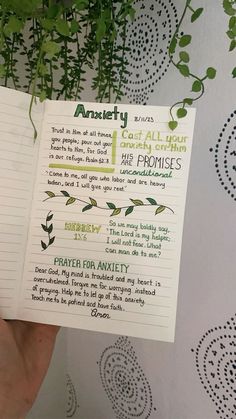 Anxiety
8/11/23
Trust in Him at all times,
you people; pour out your
hearts to Him, for God
is our refuge. Psalm 62:8
Cast ALL your
anxiety on Him
HIS ARE PROMISES
unconditional
"Come to me, all you who labor and are heavy
laden, and I will give you rest."
HEBREW
13:6
So we may boldly say:
"The Lord is my helper;
I will not fear. What
can man do to me?"
PRAYER FOR ANXIETY
Dear God, My mind is troubled and my heart is
overwhelmed. Forgive me for worrying instead
of praying. Help me to let go of this anxiety.
Teach me to be patient and have faith.
Amen